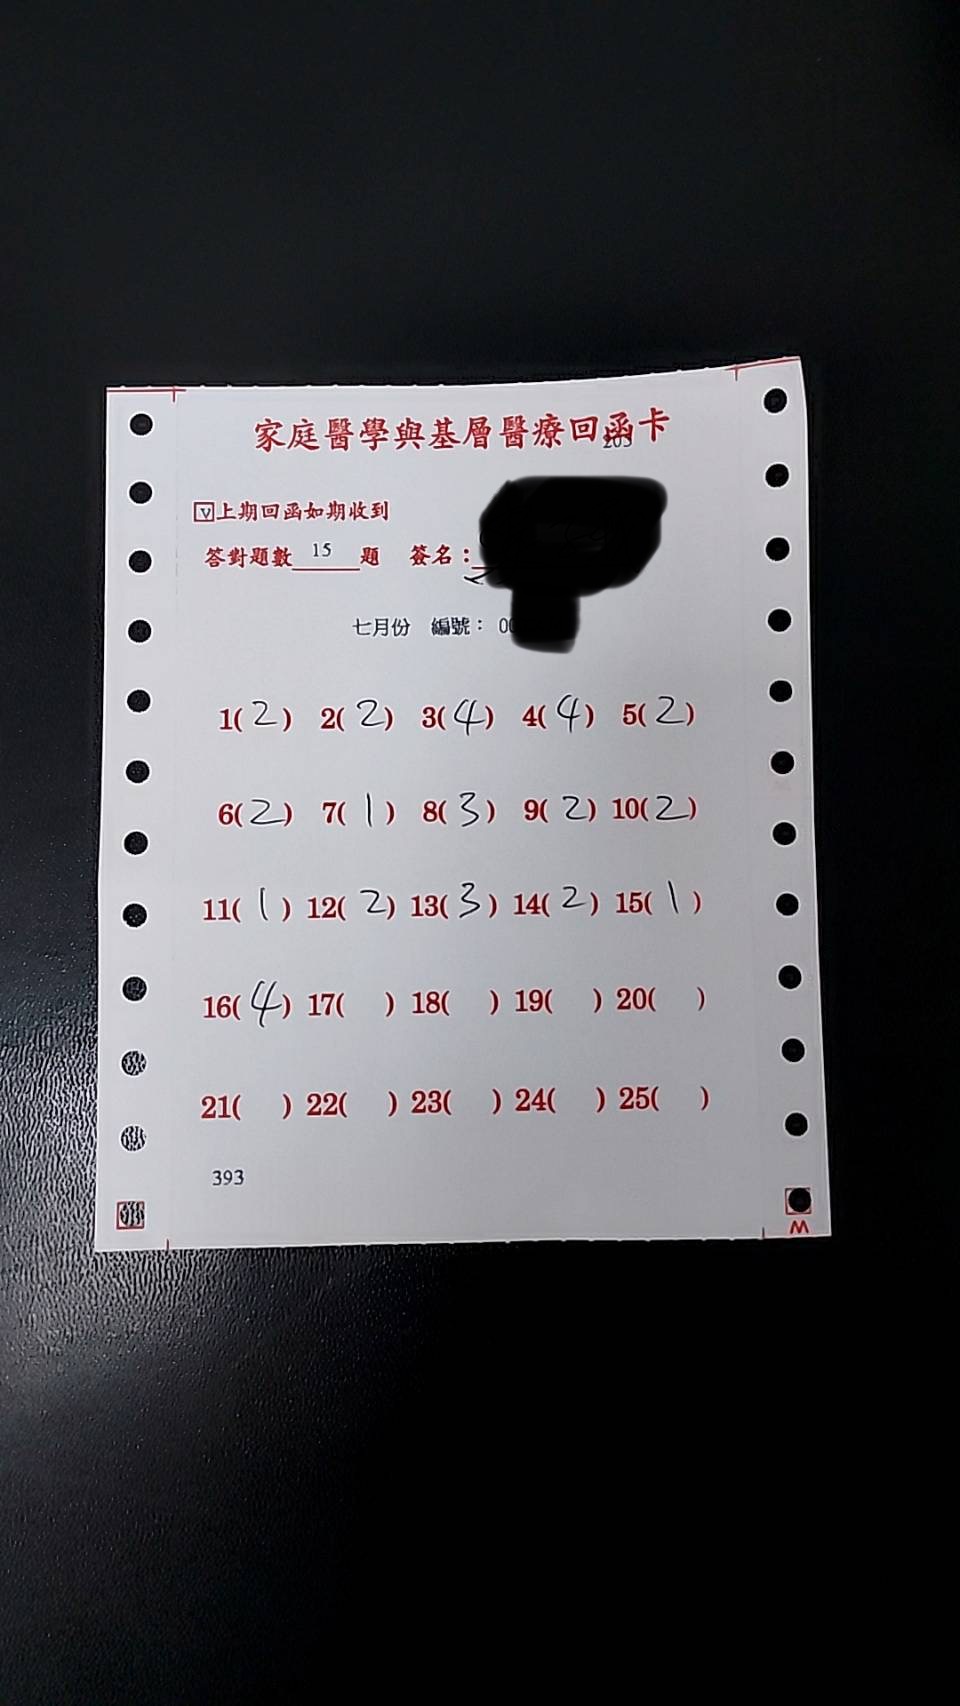 家庭醫學與基層醫療回函卡
203
v上期回函如期收到
答對題數 15 題 簽名：
七月份 編號： 00
1( 2 ) 2( 2 ) 3( 4 ) 4( 4 ) 5( 2 )
6( 2 ) 7( 1 ) 8( 3 ) 9( 2 ) 10( 2 )
11( 1 ) 12( 2 ) 13( 3 ) 14( 2 ) 15( 1 )
16( 4 ) 17( ) 18( ) 19( ) 20( )
21( ) 22( ) 23( ) 24( ) 25( )
393
W